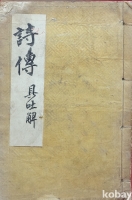 詩傳
具吐解
kobay